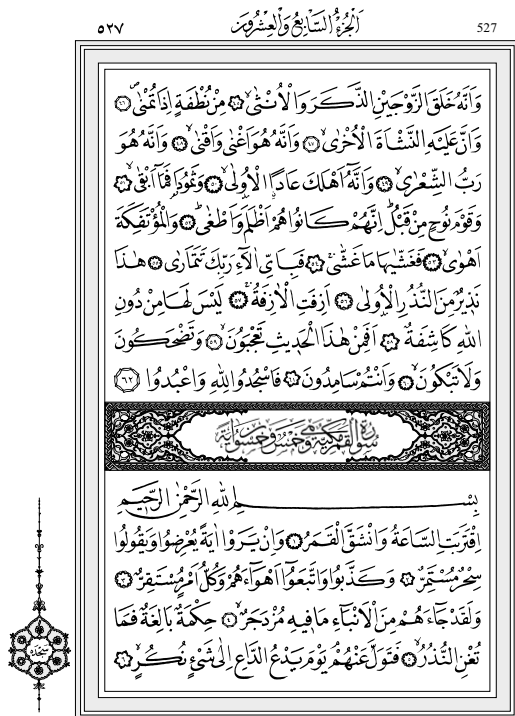 ٥٢٧ اَلْجُزْءُ السَّابِعُ وَالْعِشْرُونَ 527
وَاَنَّهُ خَلَقَ الزَّوْجَيْنِ الذَّكَرَ وَالْاُنْثٰىۙ ﴿٤٥﴾ مِنْ نُطْفَةٍ اِذَا تُمْنٰىۖ ﴿٤٦﴾
وَاَنَّ عَلَيْهِ النَّشْاَةَ الْاُخْرٰىۙ ﴿٤٧﴾ وَاَنَّهُ هُوَ اَغْنٰى وَاَقْنٰىۙ ﴿٤٨﴾ وَاَنَّهُ هُوَ
رَبُّ الشِّعْرٰىۙ ﴿٤٩﴾ وَاَنَّهُٓ اَهْلَكَ عَادًاۨ الْاُو۫لٰىۙ ﴿٥٠﴾ وَثَمُودَا۬ فَمَٓا اَبْقٰىۙ ﴿٥١﴾
وَقَوْمَ نُوحٍ مِنْ قَبْلُۜ اِنَّهُمْ كَانُوا هُمْ اَظْلَمَ وَاَطْغٰىۜ ﴿٥٢﴾ وَالْمُؤْتَفِكَةَ
اَهْوٰىۙ ﴿٥٣﴾ فَغَشّٰيهَا مَا غَشّٰىۚ ﴿٥٤﴾ فَبِاَيِّ اٰلَٓاءِ رَبِّكَ تَتَمَارٰى ﴿٥٥﴾ هٰذَا
نَذِيرٌ مِنَ النُّذُرِ الْاُو۫لٰى ﴿٥٦﴾ اَزِفَتِ الْاٰزِفَةُۚ ﴿٥٧﴾ لَيْسَ لَهَا مِنْ دُونِ
اللّٰهِ كَاشِفَةٌۜ ﴿٥٨﴾ اَفَمِنْ هٰذَا الْحَدِيثِ تَعْجَبُونَۙ ﴿٥٩﴾ وَتَضْحَكُونَ
وَلَا تَبْكُونَۙ ﴿٦٠﴾ وَاَنْتُمْ سَامِدُونَ ﴿٦١﴾ فَاسْجُدُوا لِلّٰهِ وَاعْبُدُوا ﴿٦٢﴾
سُورَةُ الْقَمَرِ مَكِّيَّةٌ وَهِيَ خَمْسٌ وَخَمْسُونَ اٰيَةً
بِسْمِ اللّٰهِ الرَّحْمٰنِ الرَّحِيمِ
اِقْتَرَبَتِ السَّاعَةُ وَانْشَقَّ الْقَمَرُ ﴿١﴾ وَاِنْ يَرَوْا اٰيَةً يُعْرِضُوا وَيَقُولُوا
سِحْرٌ مُسْتَمِرٌّ ﴿٢﴾ وَكَذَّبُوا وَاتَّبَعُٓوا اَهْوَٓاءَهُمْ وَكُلُّ اَمْرٍ مُسْتَقِرٌّ ﴿٣﴾
وَلَقَدْ جَٓاءَهُمْ مِنَ الْاَنْبَٓاءِ مَا فِيهِ مُزْدَجَرٌۙ ﴿٤﴾ حِكْمَةٌ بَالِغَةٌ فَمَا
تُغْنِ النُّذُرُۙ ﴿٥﴾ فَتَوَلَّ عَنْهُمْۢ يَوْمَ يَدْعُ الدَّاعِ اِلٰى شَيْءٍ نُكُرٍۙ ﴿٦﴾
سجده